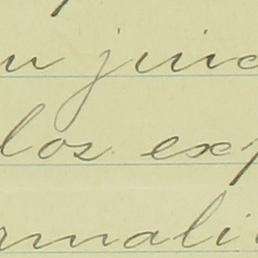 u juic
los exp
rmali